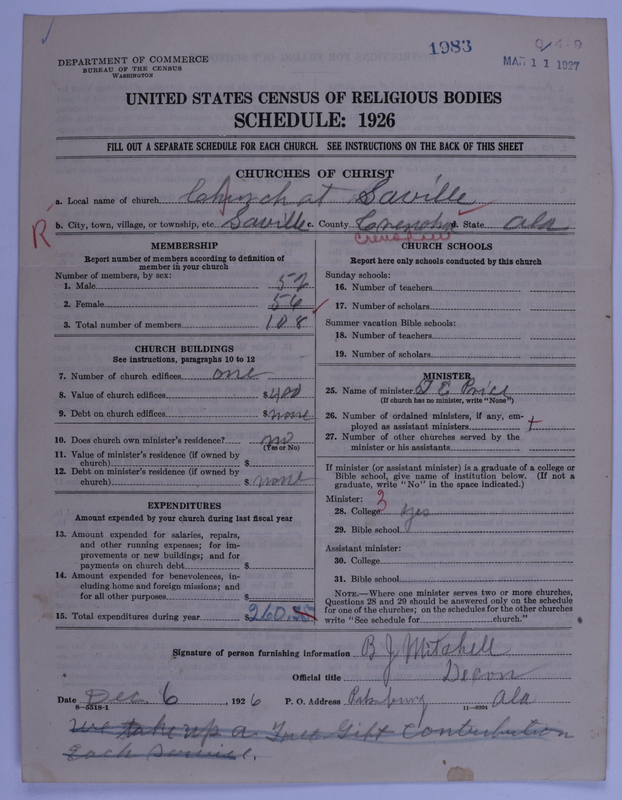 1983
MAR 11 1927
DEPARTMENT OF COMMERCE
BUREAU OF THE CENSUS
WASHINGTON
UNITED STATES CENSUS OF RELIGIOUS BODIES
SCHEDULE: 1926
FILL OUT A SEPARATE SCHEDULE FOR EACH CHURCH. SEE INSTRUCTIONS ON THE BACK OF THIS SHEET
CHURCHES OF CHRIST
a. Local name of church Church at Saville
R
b. City, town, village, or township, etc. Saville c. County Crenshaw d. State Ala
Crenshaw
MEMBERSHIP
Report number of members according to definition of
member in your church
Number of members, by sex:
1. Male 52
2. Female 56
3. Total number of members 108
CHURCH BUILDINGS
See instructions, paragraphs 10 to 12
7. Number of church edifices one
8. Value of church edifices $400
9. Debt on church edifices $none
10. Does church own minister's residence? no
(Yes or No)
11. Value of minister's residence (if owned by
church) $
12. Debt on minister's residence (if owned by
church) $ none
EXPENDITURES
Amount expended by your church during last fiscal year
13. Amount expended for salaries, repairs,
and other running expenses; for im-
provements or new buildings; and for
payments on church debt $
14. Amount expended for benevolences, in-
cluding home and foreign missions; and
for all other purposes $
15. Total expenditures during year $260.
CHURCH SCHOOLS
Report here only schools conducted by this church
Sunday schools:
16. Number of teachers
17. Number of scholars
Summer vacation Bible schools:
18. Number of teachers
19. Number of scholars
MINISTER
25. Name of minister T E Price
(If church has no minister, write "None")
26. Number of ordained ministers, if any, em-
ployed as assistant ministers
27. Number of other churches served by the
minister or his assistants
If minister (or assistant minister) is a graduate of a college or
Bible school, give name of institution below. (If not a
graduate, write "No" in the space indicated.)
Minister: 3
28. College yes
29. Bible school
Assistant minister:
30. College
31. Bible school
NOTE.—Where one minister serves two or more churches,
Questions 28 and 29 should be answered only on the schedule
for one of the churches; on the schedules for the other churches
write "See schedule for church."
Signature of person furnishing information B J Mitchell
Official title Decon
Date Dec. 6, 1926 P. O. Address Ala
8—5518-1 11—9204
We take up a Free Gift Conterbution
Each Service.